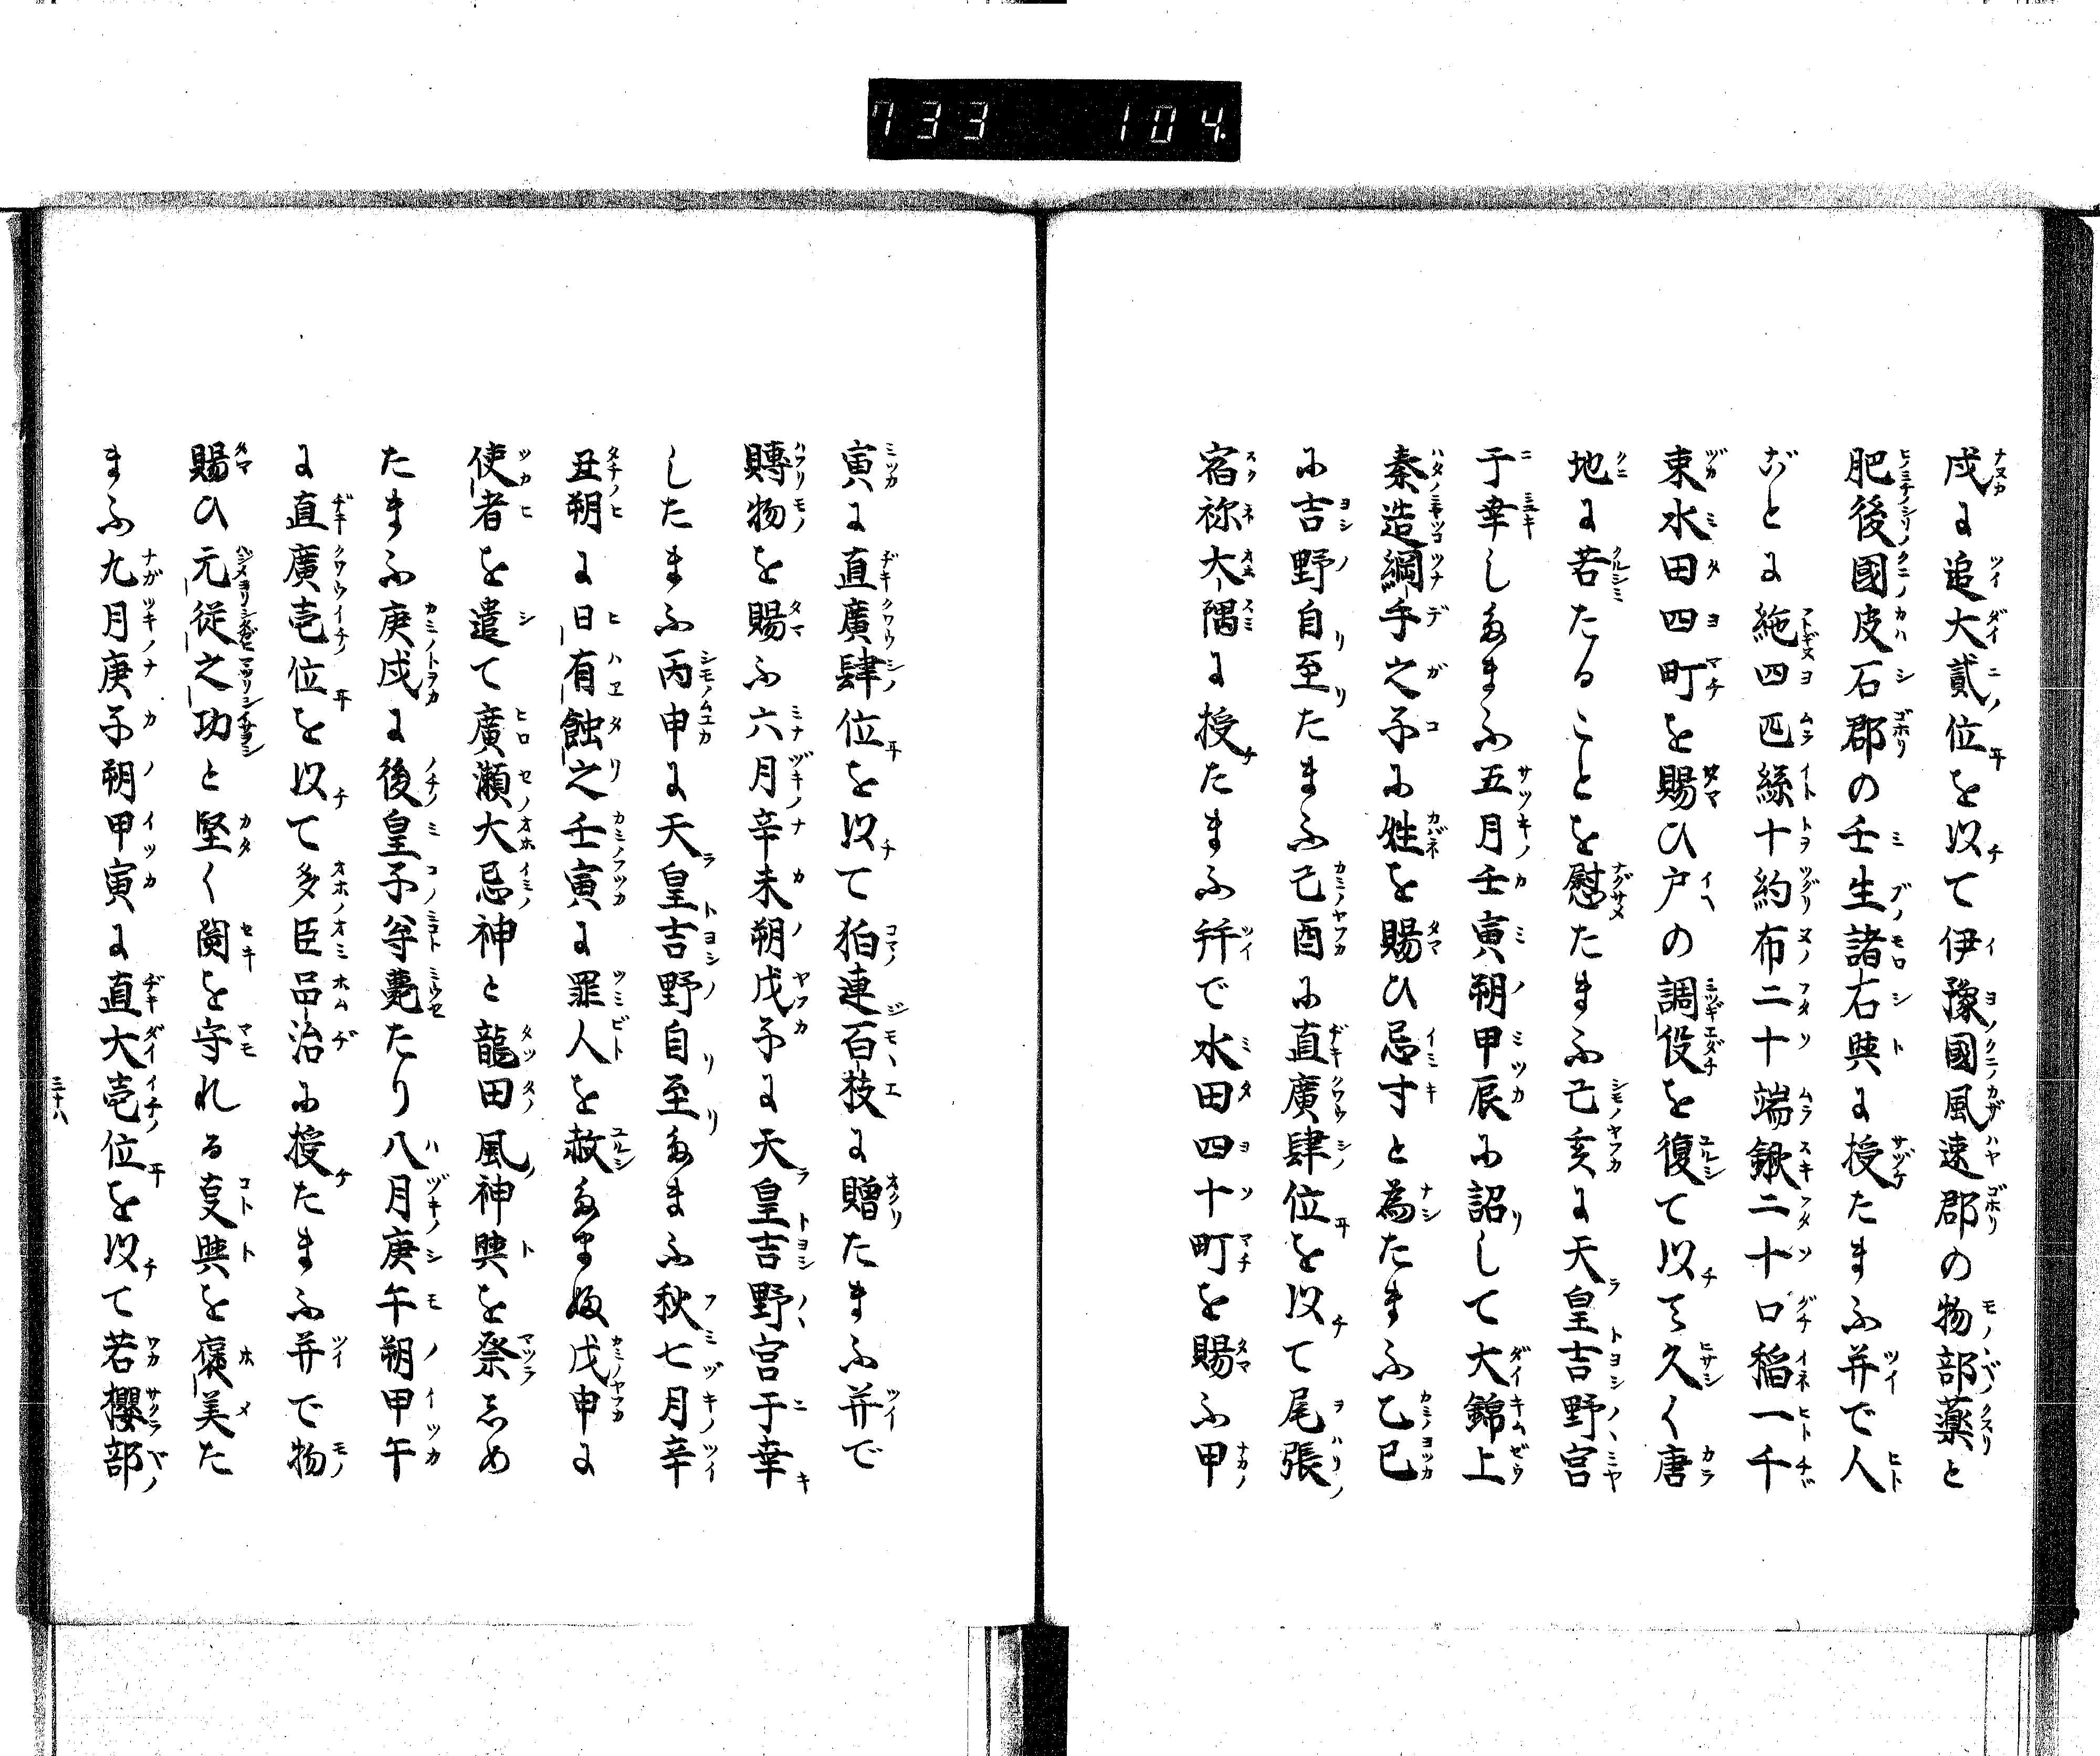 733 104
戌に追大貳位を以て伊豫國風速郡の物部藥と
肥後國皮石郡の壬生諸石與に授たまふ并で人
ごとに絁四匹絲十約布二十端鍬二十口稲一千
束水田四町を賜ひ戸の調役を復て以て久く唐
地に苦たることを慰たまふ己亥に天皇吉野宮
于幸したまふ五月壬寅朔甲辰に詔して大錦上
秦造綱手之子に姓を賜ひ忌寸と為たまふ乙巳
に吉野自至たまふ己酉に直廣肆位を以て尾張
宿祢大隅に授たまふ并で水田四十町を賜ふ甲
寅に直廣肆位を以て狛連百枝に贈たまふ并で
賻物を賜ふ六月辛未朔戊子に天皇吉野宮于幸
したまふ丙申に天皇吉野自至たまふ秋七月辛
丑朔に日有蝕之壬寅に罪人を赦たまぬ戊申に
使者を遣て廣瀬大忌神と龍田風神與を祭しめ
たまふ庚戌に後皇子尊薨たり八月庚午朔甲午
に直廣壱位を以て多臣品治に授たまふ并で物
賜ひ元従之功と堅く関を守れる事與を褒美た
まふ九月庚子朔甲寅に直大壱位を以て若櫻部
三十八